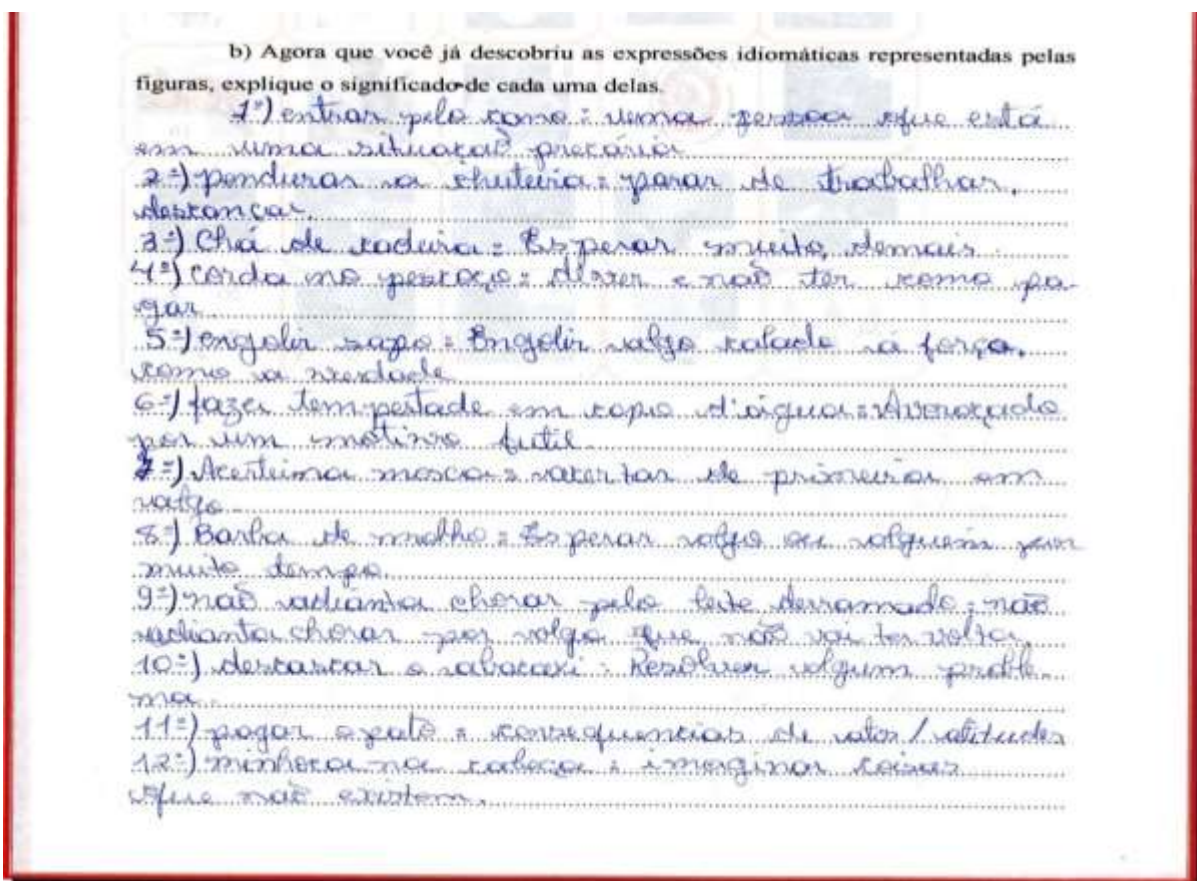 b) Agora que você já descobriu as expressões idiomáticas representadas pelas
figuras, explique o significado de cada uma delas.
1º) entrar pelo cano = uma pessoa que está
em uma situação precária
2º) pendurar a chuteira = parar de trabalhar,
descançar.
3º) Chá de cadeira = Esperar muito, demais.
4º) corda no pescoço = dever e não ter como pa-
gar
5º) engolir sapo = Engolir algo calado a força,
como a verdade
6º) fazer tempestade em copo d'água =
por um motivo futil
7º) na mosca = acertar de primeira em
algo
8º) Barba de molho = Esperar algo ou alguém por
muito tempo.
9º) não adianta chorar pelo leite derramado = não
adianta chorar por algo que não vai ter volta.
10º) descascar o abacaxi = Resolver algum proble-
ma.
11º) pagar o pato = consequencias de atos / atitudes
12º) minhoca na cabeça = imaginar coisas
que não existem.